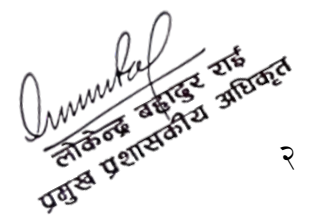 लोकेन्द्र बहादुर राई
प्रमुख प्रशासकीय अधिकृत
२